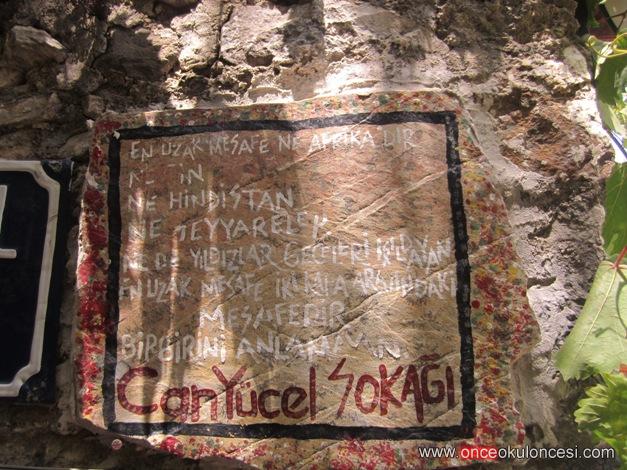 EN UZAK MESAFE NE AFRİKA DIR
NE HİNDİSTAN
NE SEYYARELER
NE DE YILDIZLAR GECELERİ
EN UZAK MESAFE İKİ KAFA ARASINDAKİ
MESAFEDİR
BİRBİRİNİ ANLAMAYAN
Can Yücel SOKAĞI
www.onceokuloncesi.com